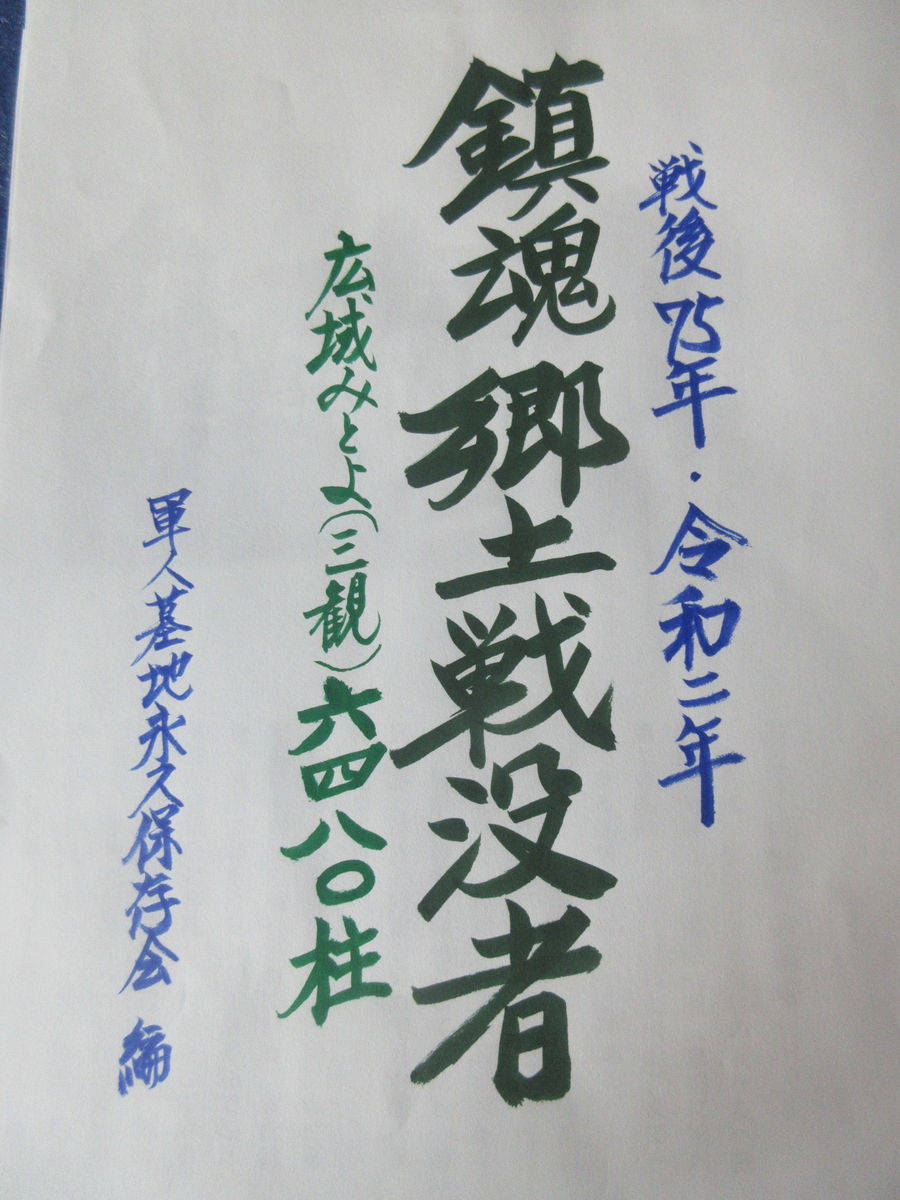 戦後75年・令和二年
鎮魂 郷土戦没者
広域みとよ(三観)六四八〇柱
軍人墓地永久保存会 編